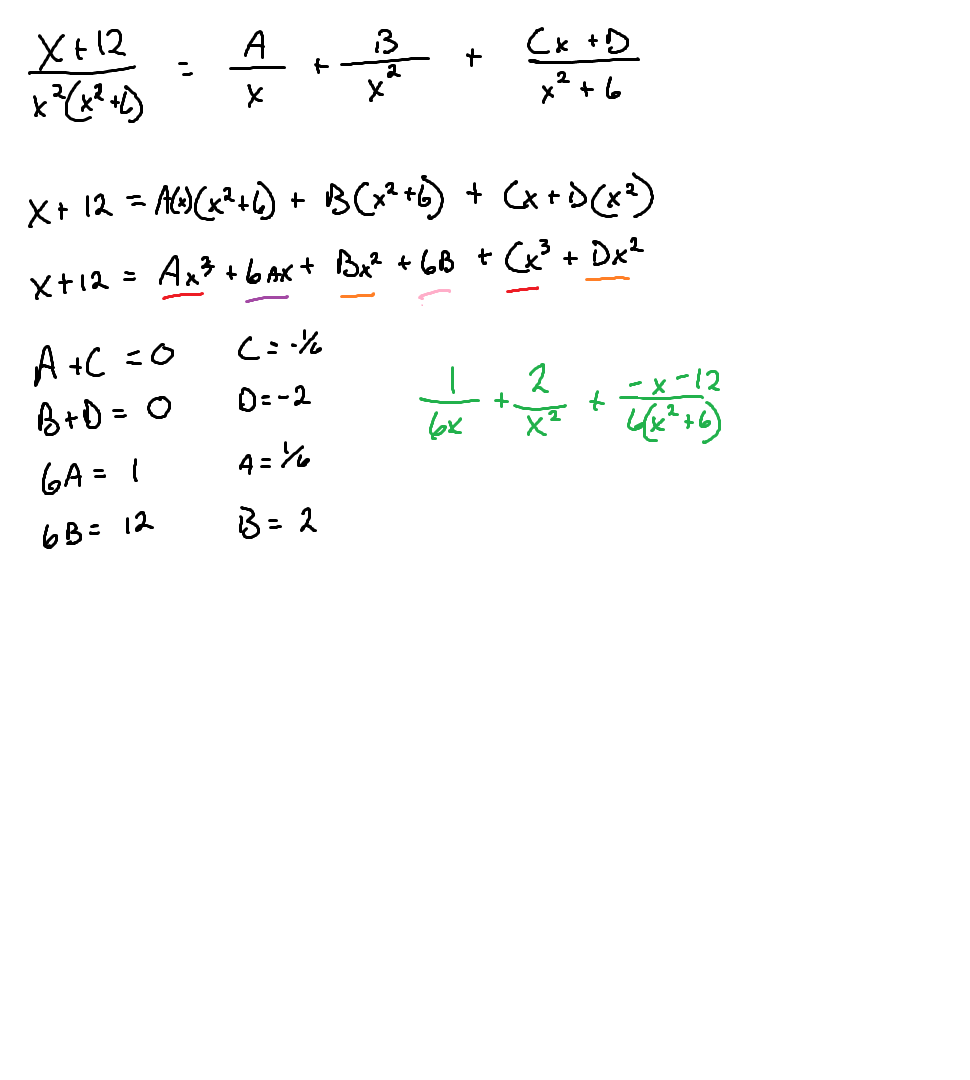 x+12 / x²(x²+6) = A/x + B/x² + Cx+D / x²+6
x+12 = A(x)(x²+6) + B(x²+6) + Cx+D(x²)
x+12 = Ax³ + 6Ax + Bx² + 6B + Cx³ + Dx²
A+C = 0 C = -1/6
B+D = 0 D = -2
6A = 1 A = 1/6
6B = 12 B = 2
1/6x + 2/x² + -x-12 / 6(x²+6)